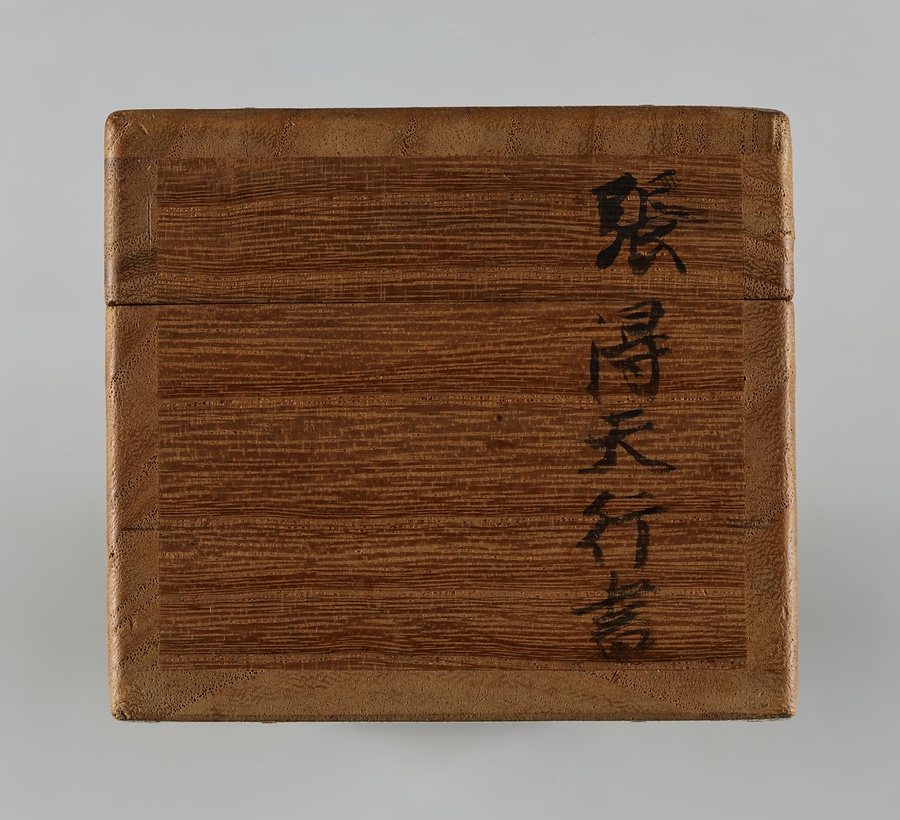 張得天行書